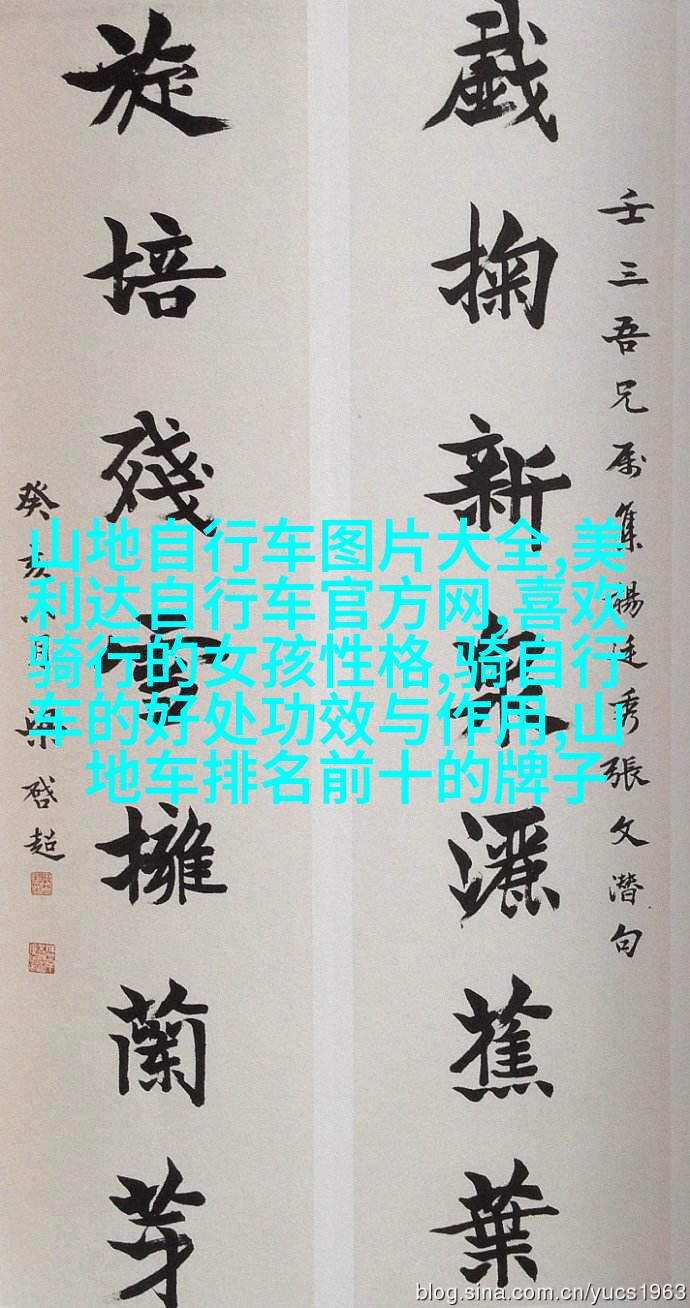 壬三吾兄属集楊廷秀張文潛句
戱掬新泉灑蕉葉
旋培殘雪擁蘭芽
癸亥月梁啓超
山地自行车图片大全,美
利达自行车官方网,喜欢
骑行的女孩性格,骑自行
车的好处功效与作用,山
地车排名前十的牌子
blog.sina.com.cn/yucs1963